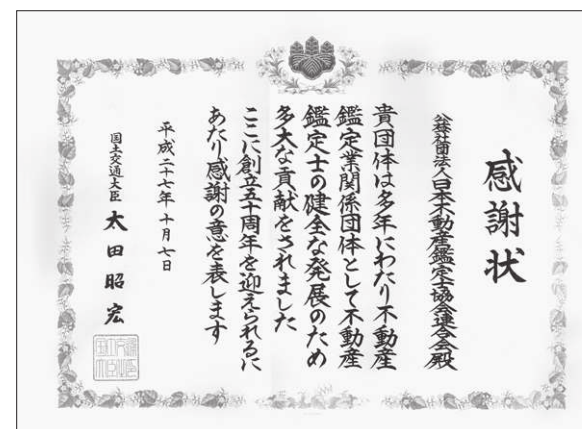 感謝状
公益社団法人日本不動産鑑定士協会連合会殿
貴団体は多年にわたり不動産
鑑定業関係団体として不動産
鑑定士の健全な発展のため
多大な貢献をされました
ここに創立五十周年を迎えられるに
あたり感謝の意を表します
平成二十七年十月七日
国土交通大臣 太田昭宏